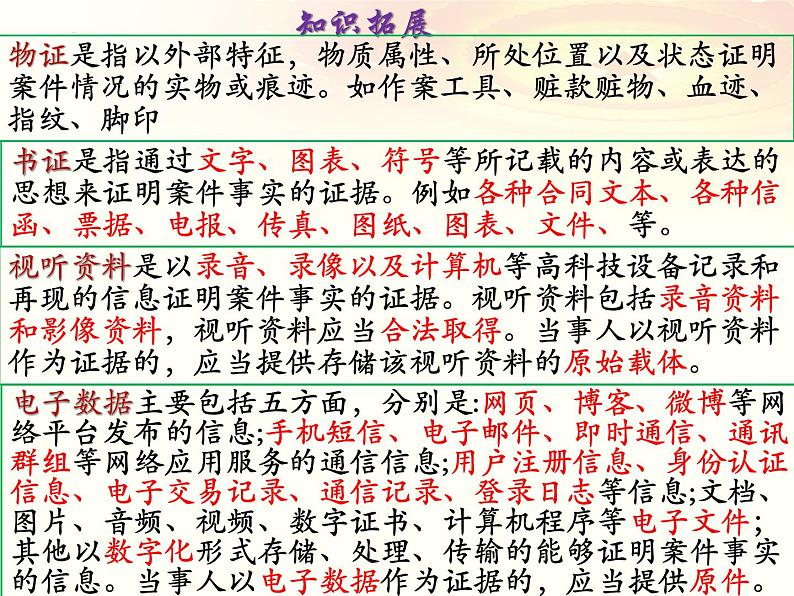 知识拓展
物证是指以外部特征，物质属性、所处位置以及状态证明
案件情况的实物或痕迹。如作案工具、赃款赃物、血迹、
指纹、脚印
书证是指通过文字、图表、符号等所记载的内容或表达的
思想来证明案件事实的证据。例如各种合同文本、各种信
函、票据、电报、传真、图纸、图表、文件、等。
视听资料是以录音、录像以及计算机等高科技设备记录和
再现的信息证明案件事实的证据。视听资料包括录音资料
和影像资料，视听资料应当合法取得。当事人以视听资料
作为证据的，应当提供存储该视听资料的原始载体。
电子数据主要包括五方面，分别是:网页、博客、微博等网
络平台发布的信息;手机短信、电子邮件、即时通信、通讯
群组等网络应用服务的通信信息;用户注册信息、身份认证
信息、电子交易记录、通信记录、登录日志等信息;文档、
图片、音频、视频、数字证书、计算机程序等电子文件；
其他以数字化形式存储、处理、传输的能够证明案件事实
的信息。当事人以电子数据作为证据的，应当提供原件。